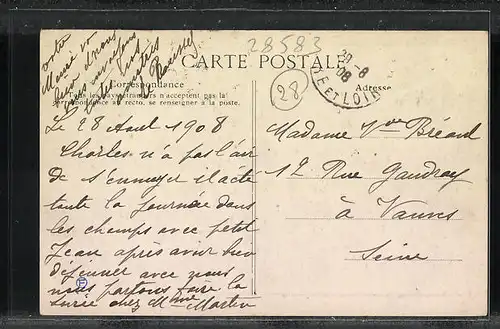 28583
CARTE POSTALE
Correspondance
Tous les pays étrangers n'acceptent pas la
correspondance au recto, se renseigner à la poste.
Adresse
28
20-8
08
E ET LOIR
Le 28 Aout 1908
Charles n'a pas l'air
de s'ennuyer il a été
toute la journée dans
les champs avec petit
Jean après avoir bien
déjeuner avec nous
nous partons faire la
soirée chez Mme Martin
Madame Vve Bréant
12 Rue Gaudray
à Vanves
Seine